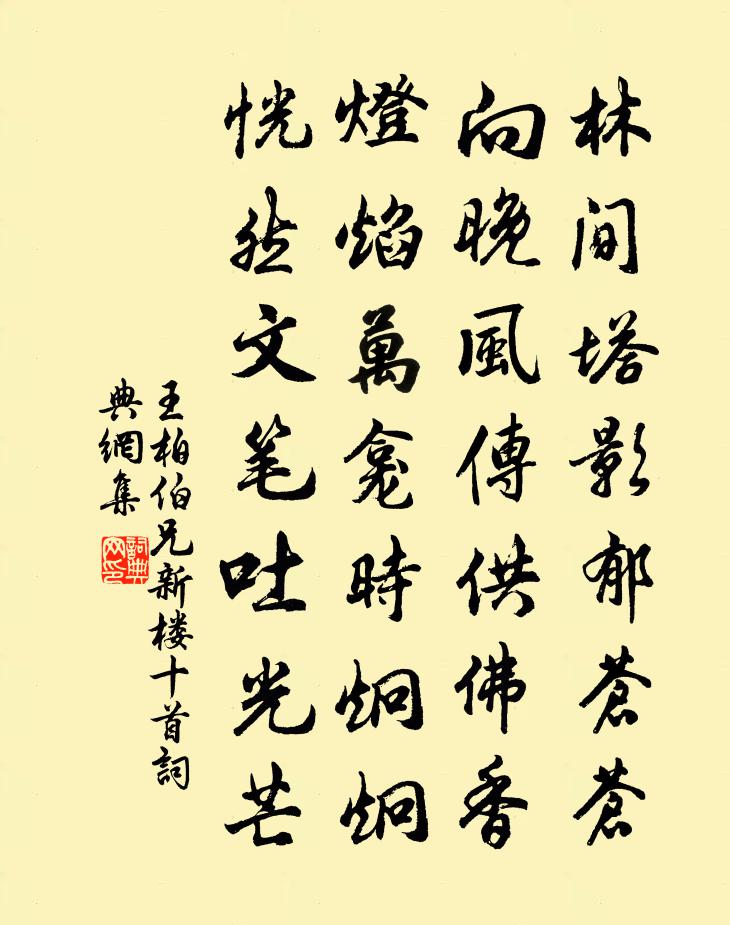 林間塔影郁蒼蒼
向晚風傳供佛香
燈焰萬龕時炯炯
恍然文笔吐光芒
王柏伯兄新楼十首詞
典網集
詞典網印